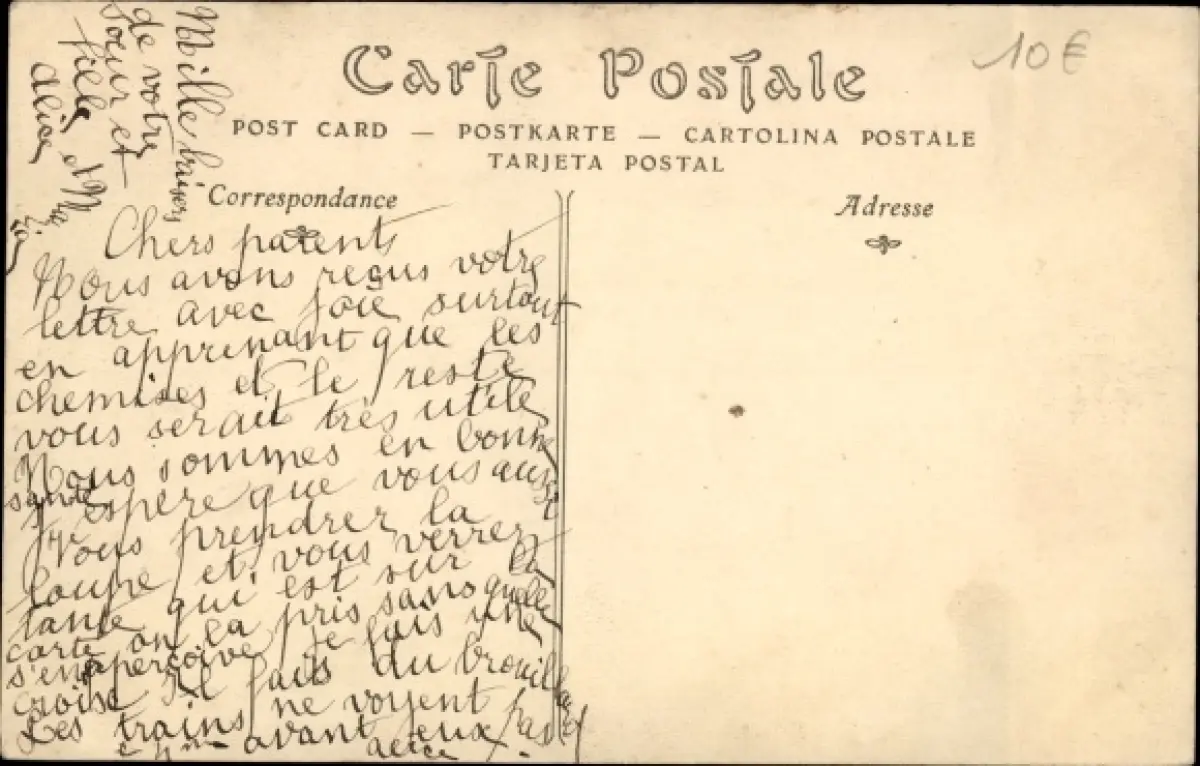 Carte Postale
POST CARD — POSTKARTE — CARTOLINA POSTALE
TARJETA POSTAL
10€
Correspondance
Adresse
Chers parents
Nous avons reçus votre
lettre avec joie surtout
en apprenant que les
chemises et le reste
vous serait très utile
Nous sommes en bonne
santé
J'espère que vous aussi
Vous prendrez la
loupe et vous verrez
tante qui est sur la
carte on la pris sans quelle
s'en aperçoive je fais une
croise Il fait du brouillard
Les trains ne voyent pas
avant eux
alice
Mille baisers
de votre
soeur et
fille
alice